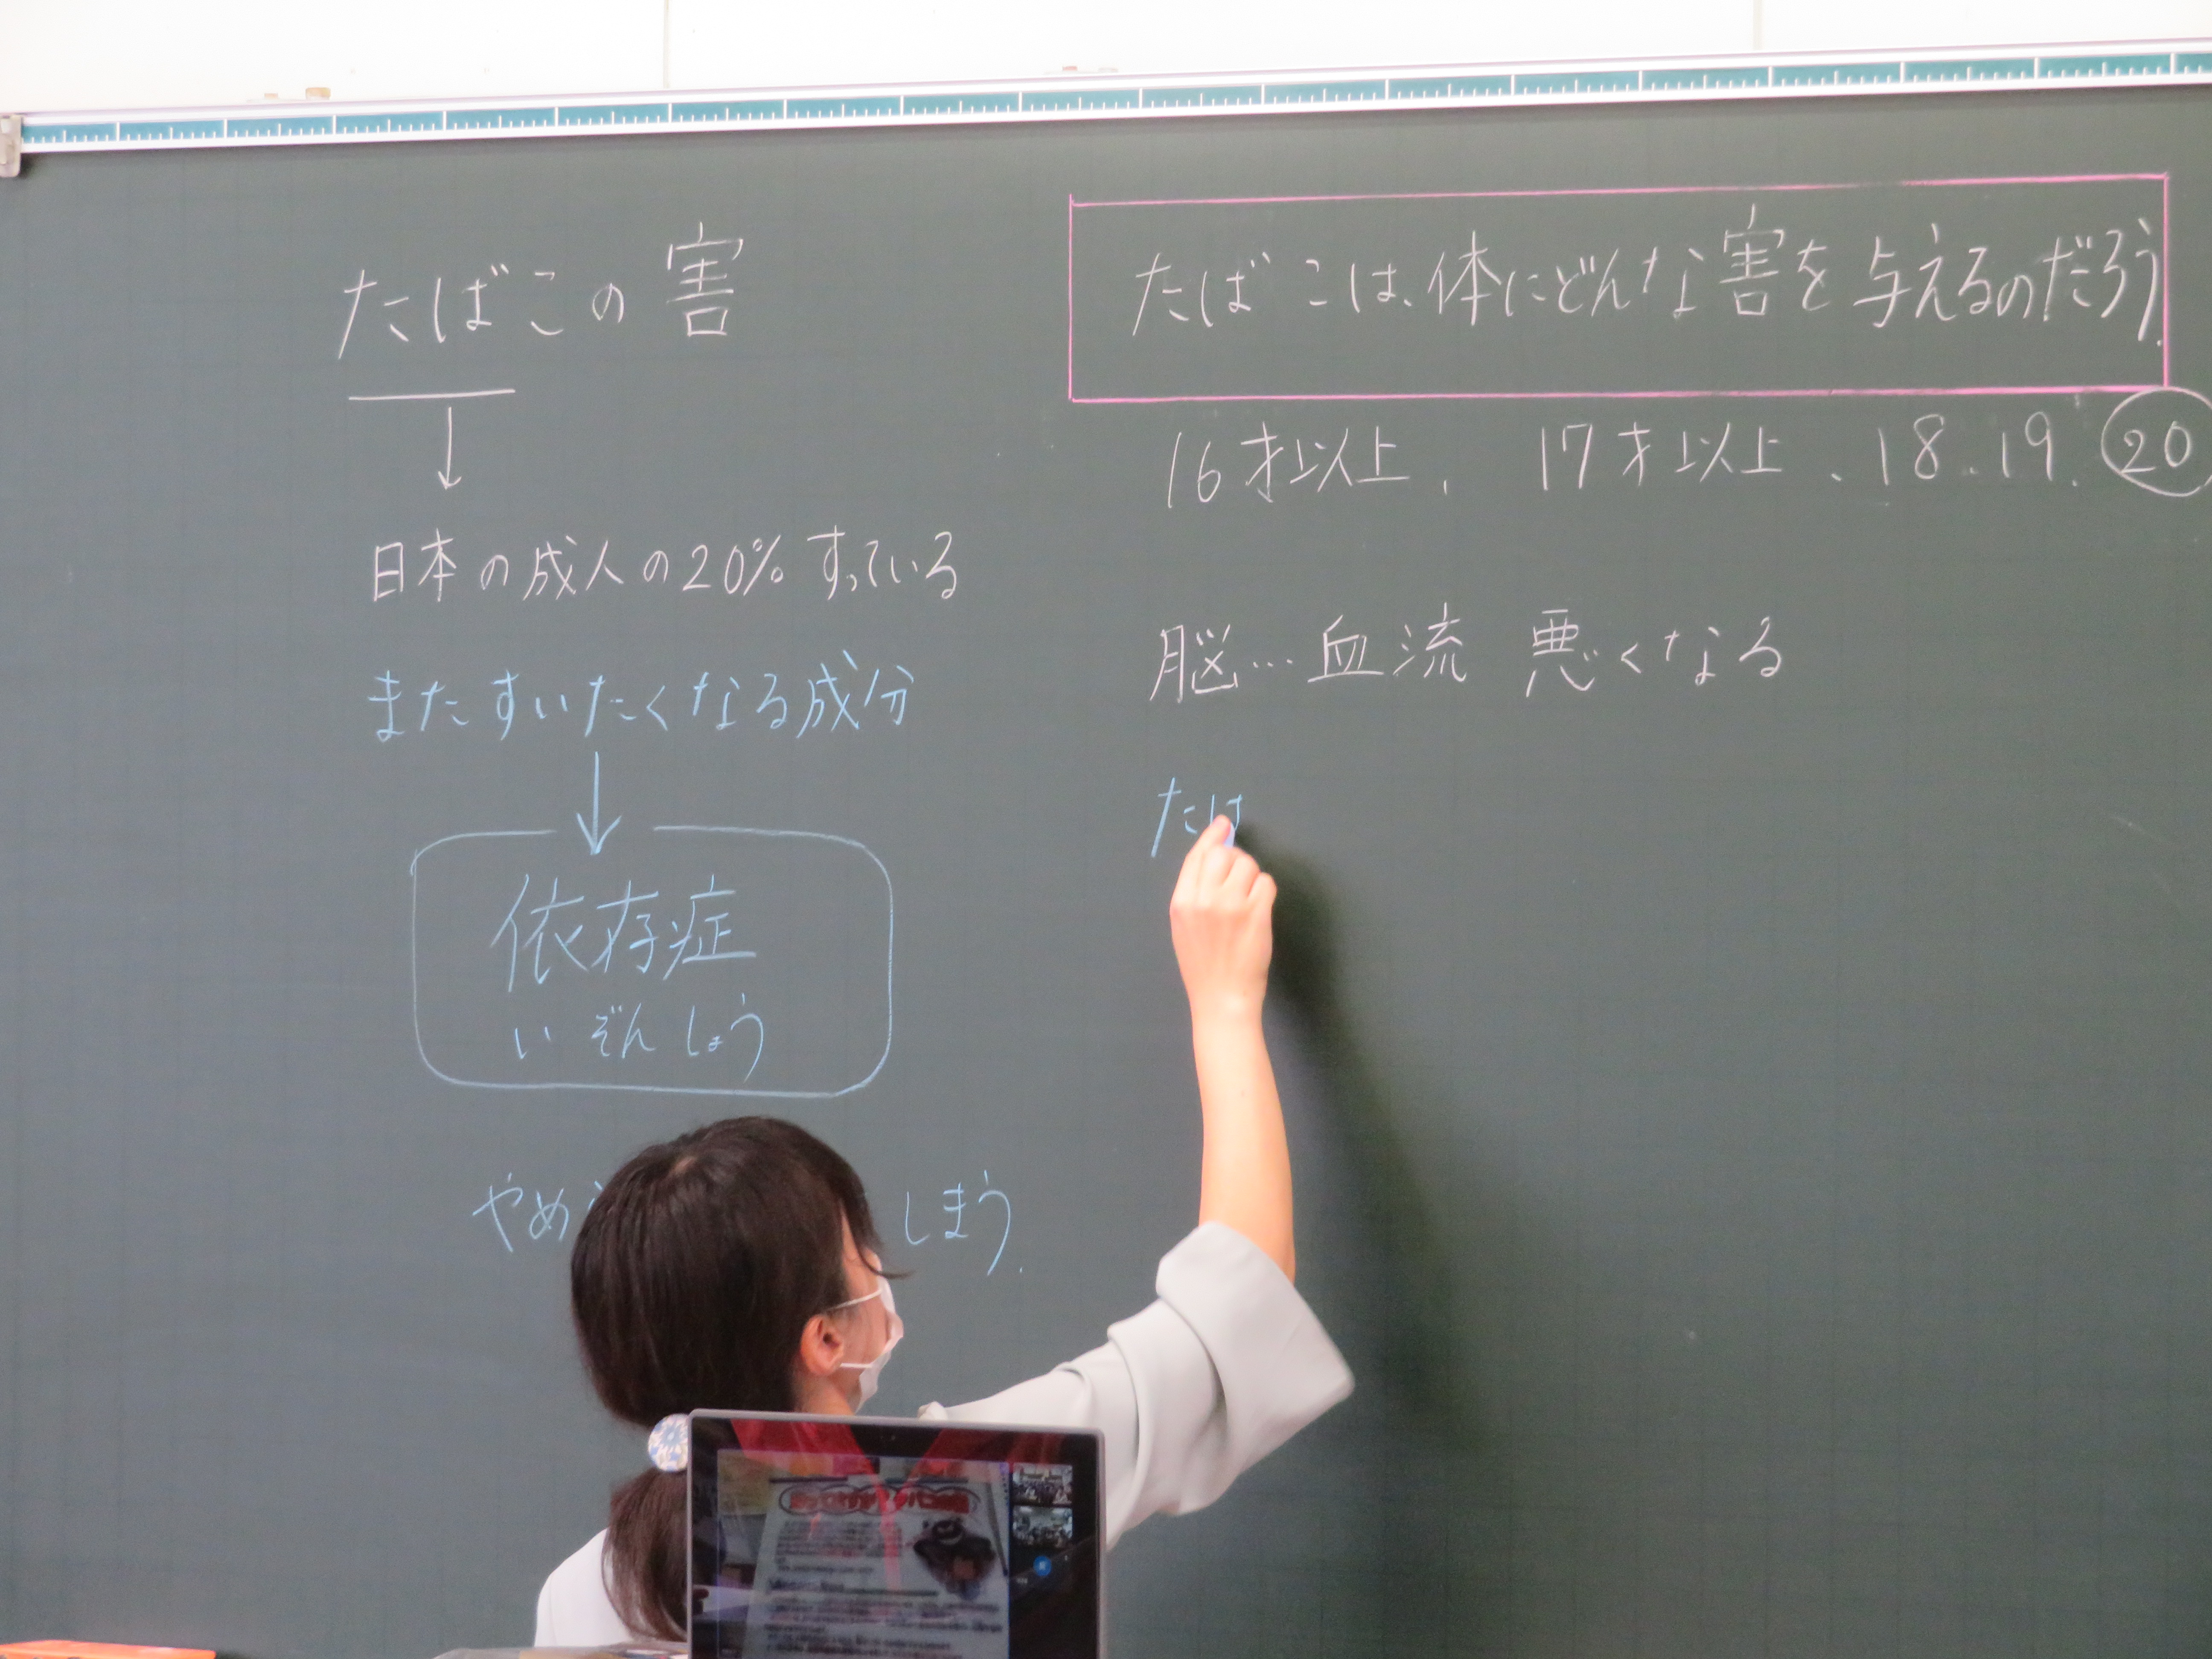 たばこの害
日本の成人の20%すっている
またすいたくなる成分
依存症
いぞんしょう
やめ
しまう.
たばこは、体にどんな害を与えるのだろう.
16才以上、17才以上、18、19、20
脳…血流 悪くなる
たは